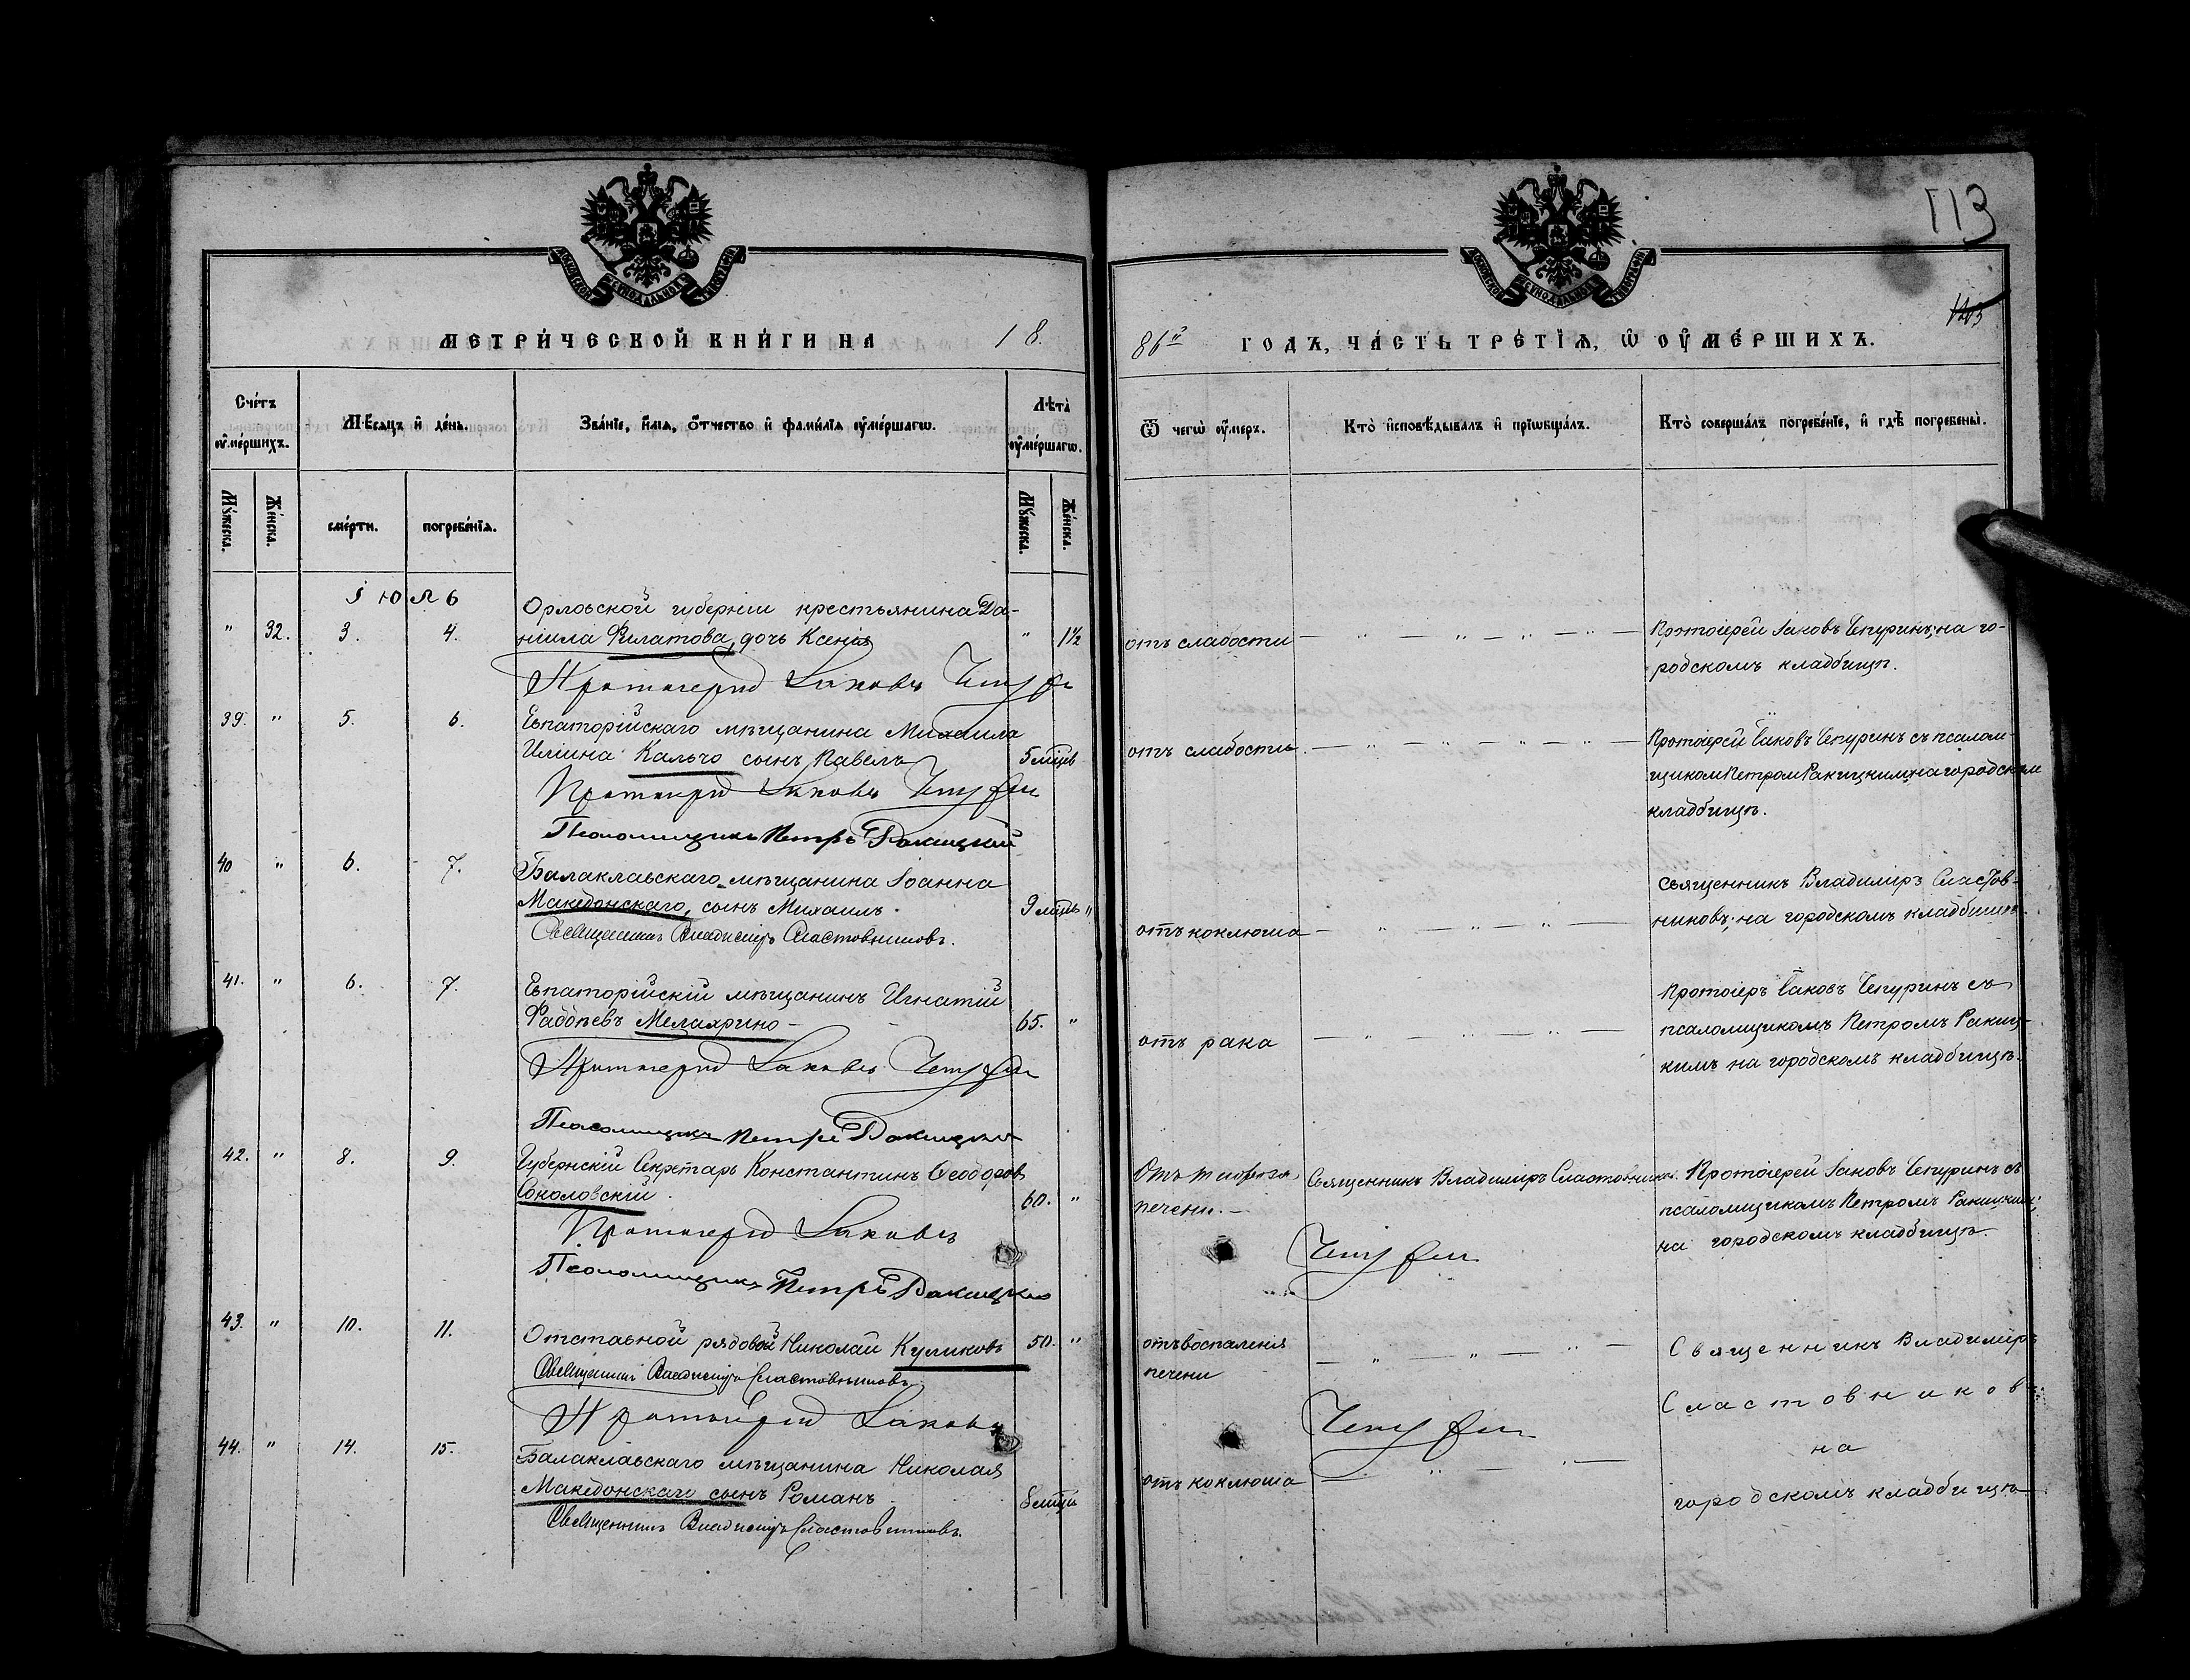 113
МЕТРИЧЕСКОЙ КНИГИ НА 18
86й ГОДЪ, ЧАСТЬ ТРЕТІЯ, Ѡ ОУМЕРШИХЪ.
Счетъ оумершихъ.
Мѣсяцъ и день.
Званіе, имя, отчество и фамилія оумершагω.
Лѣта оумершагω.
Ѿ чегω оумеръ.
Кто исповѣдывалъ и пріωбщалъ.
Кто совершалъ погребеніе, и гдѣ погребены.
Мужеска.
Женска.
смерти.
погребенія.
Мужеска.
Женска.
Іюль
Орловской губерніи крестьянина Да-
" 32. 3. 4. ніила Филатова, дочь Ксенія " 1½ отъ слабости Протоіерей Іаковъ Чепуринъ; на го-
родскомъ кладбищѣ.
Протоіерей Іаковъ Чепуринъ
39. " 5. 6. Евпаторійскаго мѣщанина Михаила
Иліина Кальчо сынъ Павелъ 5 мцев отъ слабости Протоіерей Іаковъ Чепуринъ съ псалом-
щиком Петром Ракицким на городском
кладбищѣ.
Протоіерей Іаковъ Чепуринъ
Псаломщикъ Петръ Ракицкій
40 " 6. 7. Балаклавскаго мѣщанина Іоанна
Македонскаго, сынъ Михаилъ. 9 мцевъ " отъ коклюша Священникъ Владиміръ Сластов-
никовъ; на городскомъ кладбищѣ.
Священникъ Владиміръ Сластовниковъ.
41. " 6. 7. Евпаторійскій мѣщанинъ Игнатій
Фадѣевъ Мелахрино 65. " отъ рака Протоіер. Іаковъ Чепуринъ съ
псаломщикомъ Петромъ Ракиц-
кимъ на городскомъ кладбищѣ.
Протоіерей Іаковъ Чепуринъ
Псаломщикъ Петръ Ракицкій
42. " 8. 9. Губернскій Секретарь Константинъ Ѳеодоров
Соколовскій 60. " печени. Священникъ Владиміръ Сластовников. Протоіерей Іаковъ Чепуринъ съ
псаломщикомъ Петромъ Ракицким;
на городскомъ кладбищѣ.
Протоіерей Іаковъ Чепуринъ
Псаломщикъ Петръ Ракицкій
43. " 10. 11. Отставной рядовой Николай Куликовъ 50. " отъ воспаленія
печени Священникъ Владиміръ
Сластовников
на
городскомъ кладбищѣ
Священникъ Владиміръ Сластовниковъ
Протоіерей Іаковъ Чепуринъ
44. " 14. 15. Балаклавскаго мѣщанина Николая
Македонскаго сынъ Романъ 8 мцев отъ коклюша
Священникъ Владиміръ Сластовниковъ.